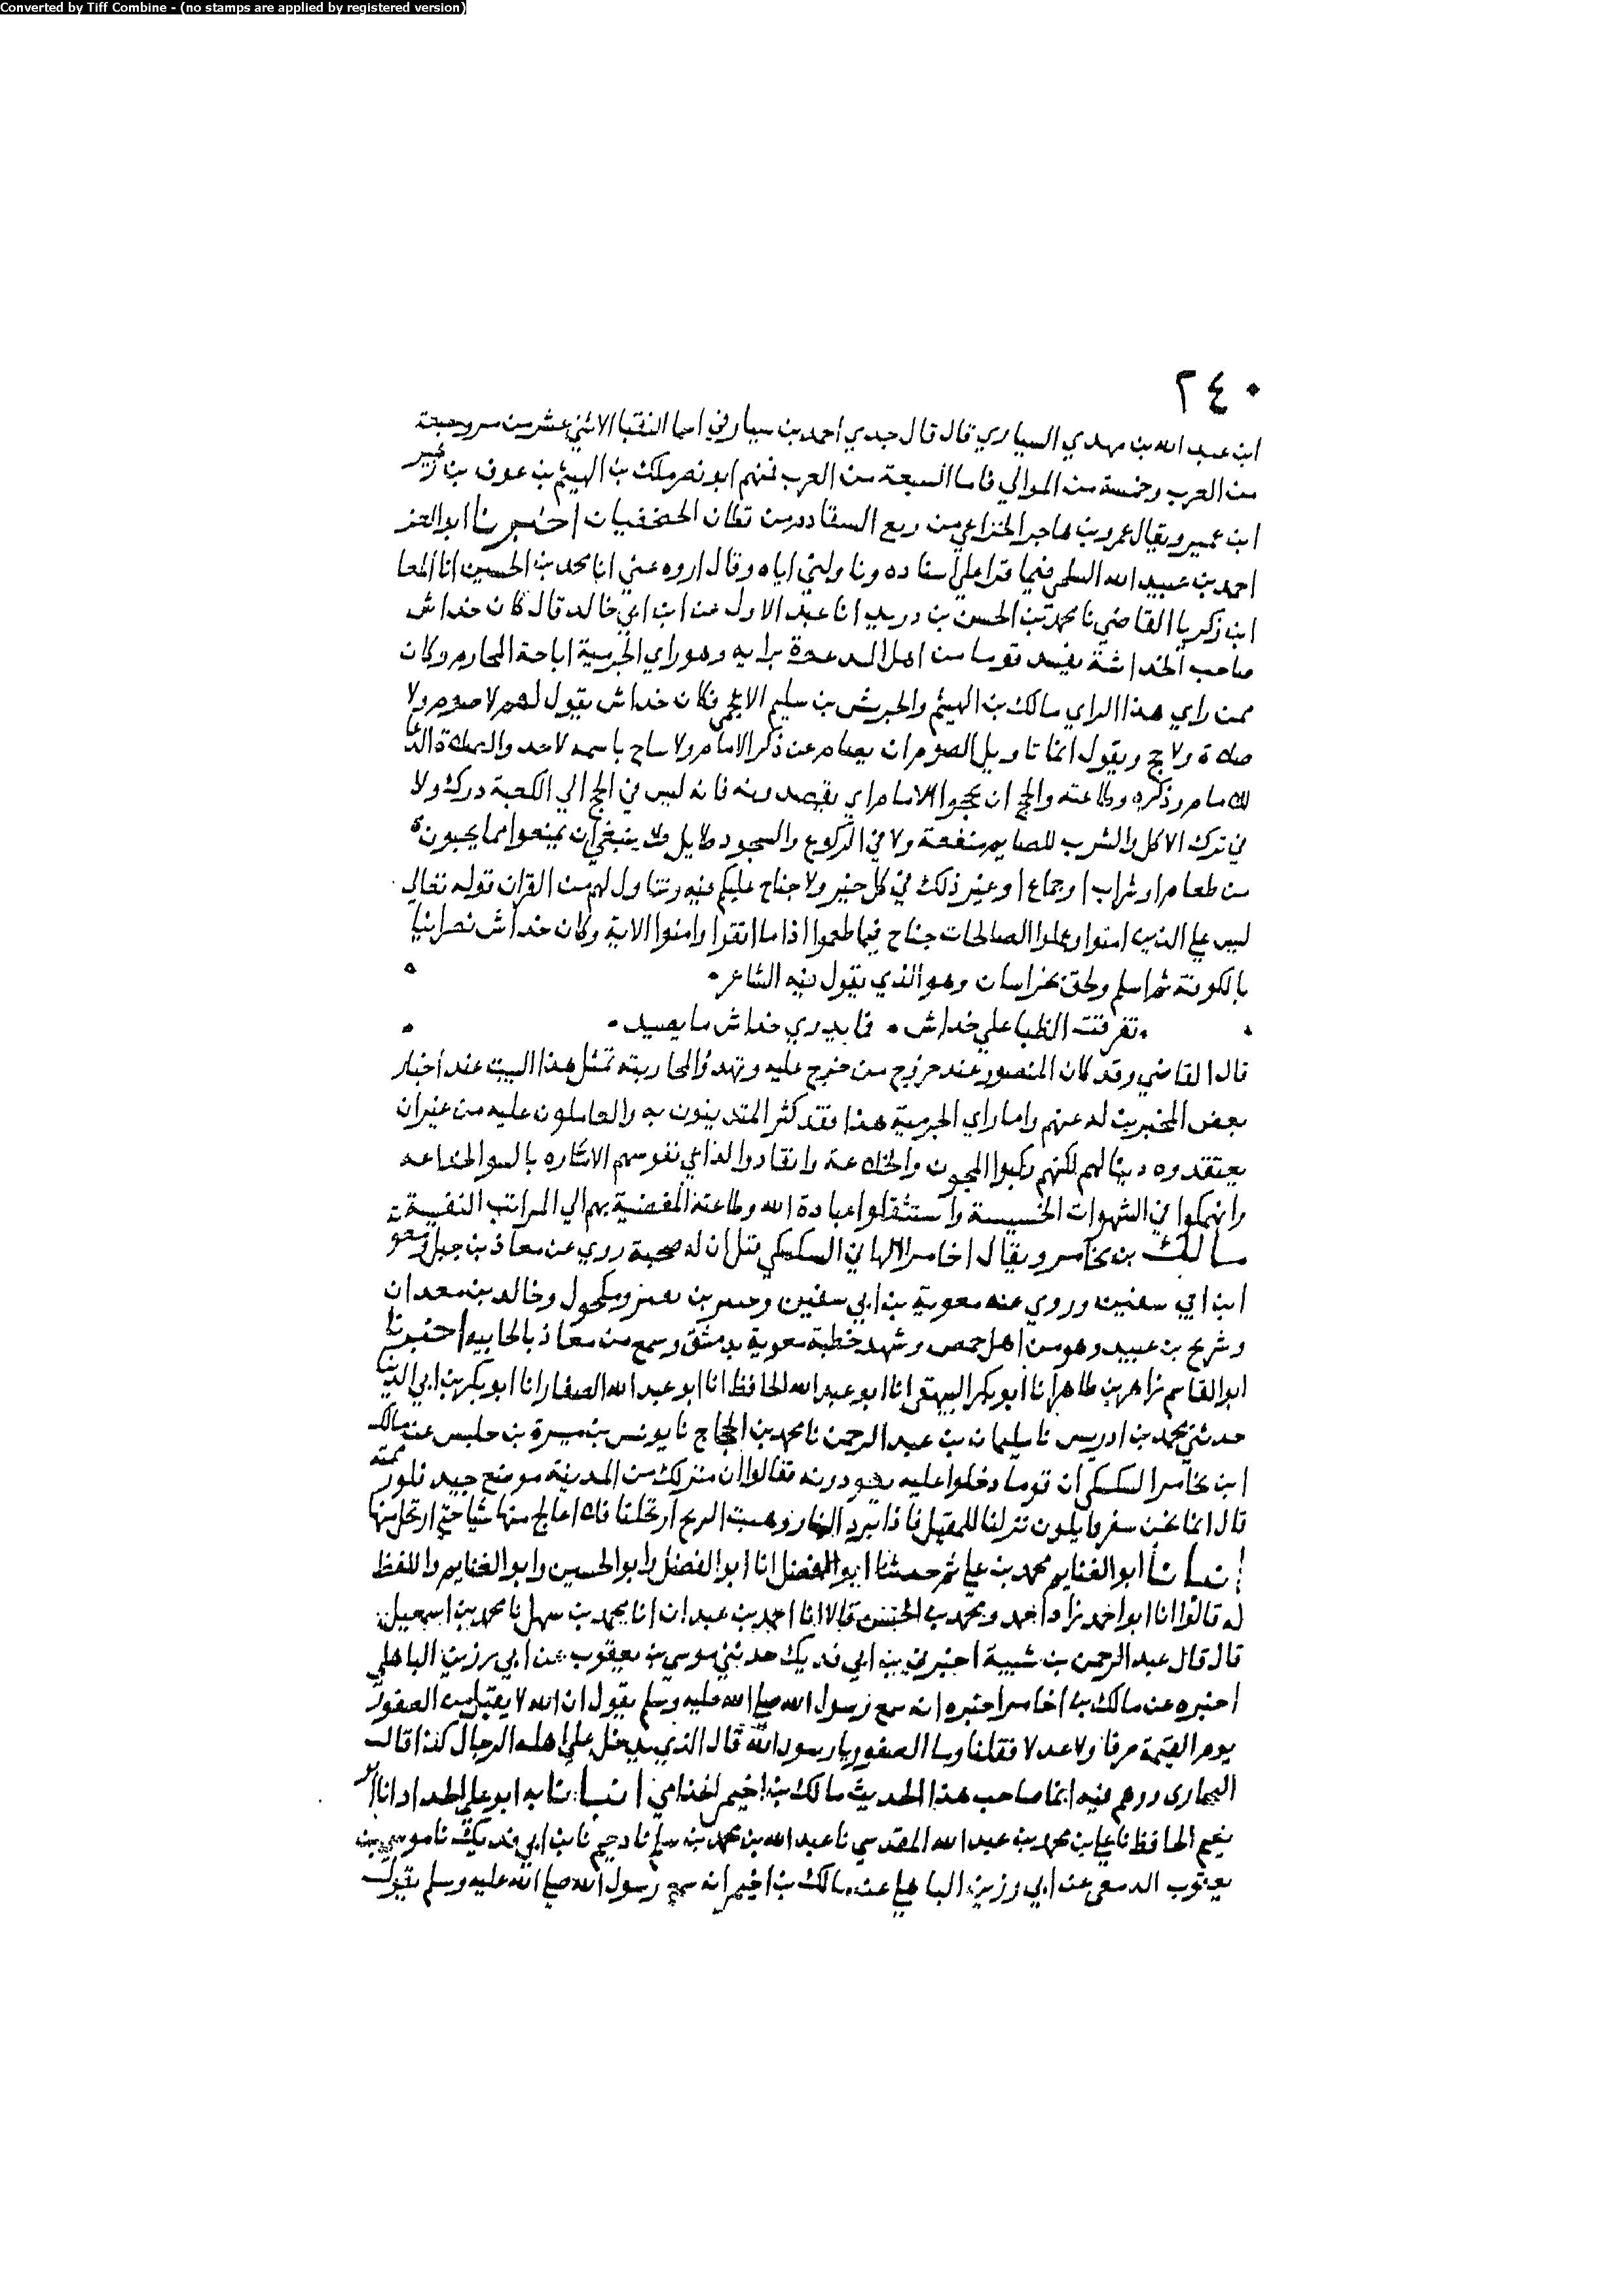 Converted by Tiff Combine - (no stamps are applied by registered version)
٢٤٠
ابن عبد الله بن مهدي السياري قال قال جدي احمد بن سيار في اسما النقبا الاثني عشر من سبعة
من العرب وخمسة من الموالي فاما السبعة من العرب فمنهم ابو نصر ملك بن الهيثم بن عوف بن
ابن عمير ويقال عمرو بن هاجر الخزاعي من ربع السقادم من اخبرنا ابو العز
احمد بن عبيد الله السلمي فيما قرا علي اسناده وناولني اياه وقال اروه عني انا محمد بن الحسين انا المعا
ابن زكريا القاضي نا محمد بن الحسن بن دريد انا عبد الاول عن ابن ابي خالد قال كان خداش
صاحب الخداشة يفيد قوما من اهل الدعوة برايه وهو راي الخرمية اباحة المحارم وكان
ممن راي هذا الراي مالك بن الهيثم والحريش بن سليم الاعجمي فكان خداش يقول لهم لا صوم ولا
صلاة ولا حج ويقول انما تاويل الصوم ان يصام عن ذكر الامام ولا يباح باسمه لاحد والصلاة الدعا
للامام وذكره وطاعته والحج ان يحجوا الامام اي يقصدونه فانه ليس في الحج الي الكعبة درك ولا
في ترك الاكل والشرب للصايم منفعة ولا في الركوع والسجود طايل فلا ينبغي ان يمنعوا مما يحبون
من طعام او شراب او جماع او غير ذلك في كل حين ولا جناح عليكم فيه ويتاول لهم من القران قوله تعالي
ليس علي الذين امنوا وعملوا الصالحات جناح فيما طعموا اذا ما اتقوا وامنوا الاية وكان خداش نصرانيا
بالكوفة ثم اسلم ولحق بخراسان وهو الذي يقول فيه الشاعر
تفرقت الظبا علي خداش فما يدري خداش ما يصيد
قال القاضي وقد كان المنصور عند خروج من خرج عليه وتهدؤ المحاربته تمثل هذا البيت عند اخبار
بعض المخبرين له عنهم واما راي الخرمية هذا فقد كثر المتدينون به والعاملون عليه من غير ان
يعتقدوه دينا لهم لكنهم ركبوا المجون والخلاعة وانقادوا لداعي نفوسهم الاماره بالسو الخداعه
وانهمكوا في الشهوات الخسيسة واستثقلوا عبادة الله وطاعته المفضية بهم الي المراتب النفيسة
مالك بن يخامر ويقال اخامر الالهاني السكسكي قيل ان له صحبة روي عن معاذ بن جبل ومعو
ابن ابي سفين وروي عنه معوية بن ابي سفين وعمير بن ومكحول وخالد بن معدان
وشريح بن عبيد وهو من اهل حمص وشهد خطبة معوية بدمشق وسمع من معاذ بالجابيه اخبرنا
ابو القاسم زاهر بن طاهر انا ابو بكر البيهقي انا ابو عبد الله الحافظ انا ابو عبد الله الصفار انا ابو بكر بن ابي الدنيا
حدثني محمد بن ادريس نا سليمان بن عبد الرحمن نا محمد بن الحجاج نا يونس بن ميسرة بن حلبس عن مالك
ابن يخامر السكسكي ان قوما دخلوا عليه يعودونه فقالوا ان منزلك من المدينة موضع جيد فلو رممته
قال انما نحن سفر قايلون نزلنا للمقيل فاذا برد النهار وهبت الريح ارتحلنا فلا اعالج منها شيا حتي ارتحل منها
انبانا ابو الغنايم محمد بن علي ثم حدثنا ابو الفضل انا ابو الفضل وابو الحسين وابو الغنايم واللفظ
له قالوا انا ابو احمد زاد احمد ومحمد بن الحسن قالا انا احمد بن عبدان انا محمد بن سهل نا محمد بن اسمعيل
قال قال عبد الرحمن بن شيبة اخبرني ابن ابي فديك حدثني موسي بن يعقوب عن ابي رزين الباهلي
اخبره عن مالك بن اخامر اخبره انه سمع رسول الله صلي الله عليه وسلم يقول ان الله لا يقبل من الصقور
يوم القيمة صرفا ولا عدلا فقلنا وما الصقور يا رسول الله قال الذي يدخل علي اهله الرجال كذا قال
البخاري ووهم فيه انما صاحب هذا الحديث مالك بن اخيمر الجذامي انبانا به ابو علي الحداد انا ابو
نعيم الحافظ نا علي بن محمد بن عبد الله المقدسي نا عبد الله بن محمد بن سلم نا دحيم نا ابن ابي فديك نا موسي بن
يعقوب الزمعي عن ابي رزين الباهلي عن مالك بن اخيمر انه سمع رسول الله صلي الله عليه وسلم يقول